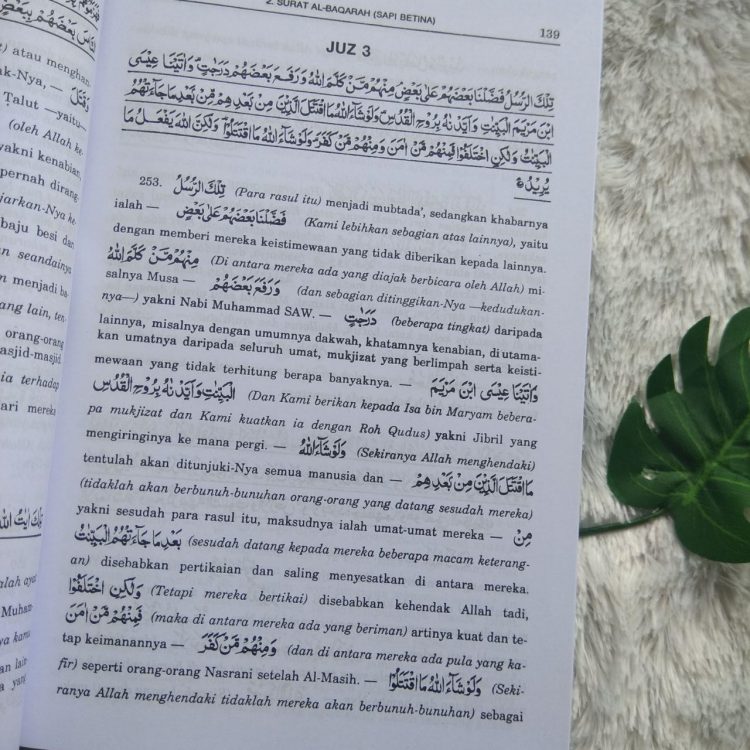 2. SURAT AL-BAQARAH (SAPI BETINA)
139
JUZ 3
تِلْكَ الرُّسُلُ فَضَّلْنَا بَعْضَهُمْ عَلٰى بَعْضٍ مِنْهُمْ مَّنْ كَلَّمَ اللّٰهُ وَرَفَعَ بَعْضَهُمْ دَرَجٰتٍ وَاٰتَيْنَا عِيْسَى
ابْنَ مَرْيَمَ الْبَيِّنٰتِ وَاَيَّدْنٰهُ بِرُوْحِ الْقُدُسِ وَلَوْ شَآءَ اللّٰهُ مَا اقْتَتَلَ الَّذِيْنَ مِنْ بَعْدِهِمْ مِّنْ بَعْدِ مَا جَآءَتْهُمُ
الْبَيِّنٰتُ وَلٰكِنِ اخْتَلَفُوْا فَمِنْهُمْ مَّنْ اٰمَنَ وَمِنْهُمْ مَّنْ كَفَرَ وَلَوْ شَآءَ اللّٰهُ مَا اقْتَتَلُوْا وَلٰكِنَّ اللّٰهَ يَفْعَلُ مَا
يُرِيْدُ
253. تِلْكَ الرُّسُلُ (Para rasul itu) menjadi mubtada', sedangkan khabarnya
ialah — فَضَّلْنَا بَعْضَهُمْ عَلٰى بَعْضٍ (Kami lebihkan sebagian atas lainnya), yaitu
dengan memberi mereka keistimewaan yang tidak diberikan kepada lainnya.
مِنْهُمْ مَّنْ كَلَّمَ اللّٰهُ (Di antara mereka ada yang diajak berbicara oleh Allah) mi-
salnya Musa — وَرَفَعَ بَعْضَهُمْ (dan sebagian ditinggikan-Nya —kedudukan-
nya—) yakni Nabi Muhammad SAW. — دَرَجٰتٍ (beberapa tingkat) daripada
lainnya, misalnya dengan umumnya dakwah, khatamnya kenabian, di utama-
kan umatnya daripada seluruh umat, mukjizat yang berlimpah serta keisti-
mewaan yang tidak terhitung berapa banyaknya. — وَاٰتَيْنَا عِيْسَى ابْنَ مَرْيَمَ
الْبَيِّنٰتِ وَاَيَّدْنٰهُ بِرُوْحِ الْقُدُسِ (Dan Kami berikan kepada Isa bin Maryam bebera-
pa mukjizat dan Kami kuatkan ia dengan Roh Qudus) yakni Jibril yang
mengiringinya ke mana pergi. — وَلَوْ شَآءَ اللّٰهُ (Sekiranya Allah menghendaki)
tentulah akan ditunjuki-Nya semua manusia dan — مَا اقْتَتَلَ الَّذِيْنَ مِنْ بَعْدِهِمْ
(tidaklah akan berbunuh-bunuhan orang-orang yang datang sesudah mereka)
yakni sesudah para rasul itu, maksudnya ialah umat-umat mereka — مِنْ
بَعْدِ مَا جَآءَتْهُمُ الْبَيِّنٰتُ (sesudah datang kepada mereka beberapa macam keterang-
an) disebabkan pertikaian dan saling menyesatkan di antara mereka.
وَلٰكِنِ اخْتَلَفُوْا (Tetapi mereka bertikai) disebabkan kehendak Allah tadi,
فَمِنْهُمْ مَّنْ اٰمَنَ (maka di antara mereka ada yang beriman) artinya kuat dan te-
tap keimanannya — وَمِنْهُمْ مَّنْ كَفَرَ (dan di antara mereka ada pula yang ka-
fir) seperti orang-orang Nasrani setelah Al-Masih. — وَلَوْ شَآءَ اللّٰهُ مَا اقْتَتَلُوْا (Seki-
ranya Allah menghendaki tidaklah mereka akan berbunuh-bunuhan) sebagai